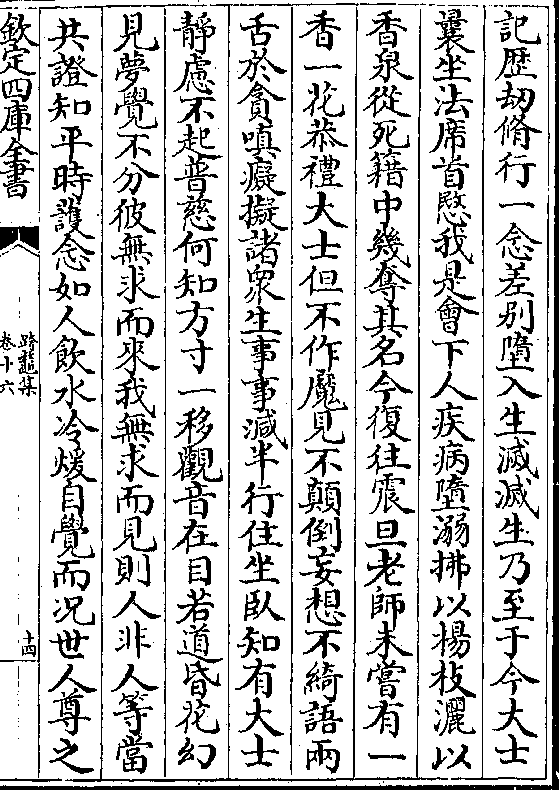 記歴劫脩行一念差别墮入生滅滅生乃至于今大士
曩坐法席首愍我是會下人疾病墮溺拂以楊枝灑以
香泉從死籍中幾奪其名今復往震旦老師未嘗有一
香一花恭禮大士但不作魔見不顛倒妄想不綺語兩
舌於貪嗔癡擬諸衆生事事減半行住坐臥知有大士
靜慮不起普慈何知方寸一移觀音在目若道昏花幻
見夢覺不分彼無求而來我無求而見則人非人等當
共證知平時護念如人飲水冷煖自覺而况世人尊之
欽定四庫全書
路集
卷十六
十四